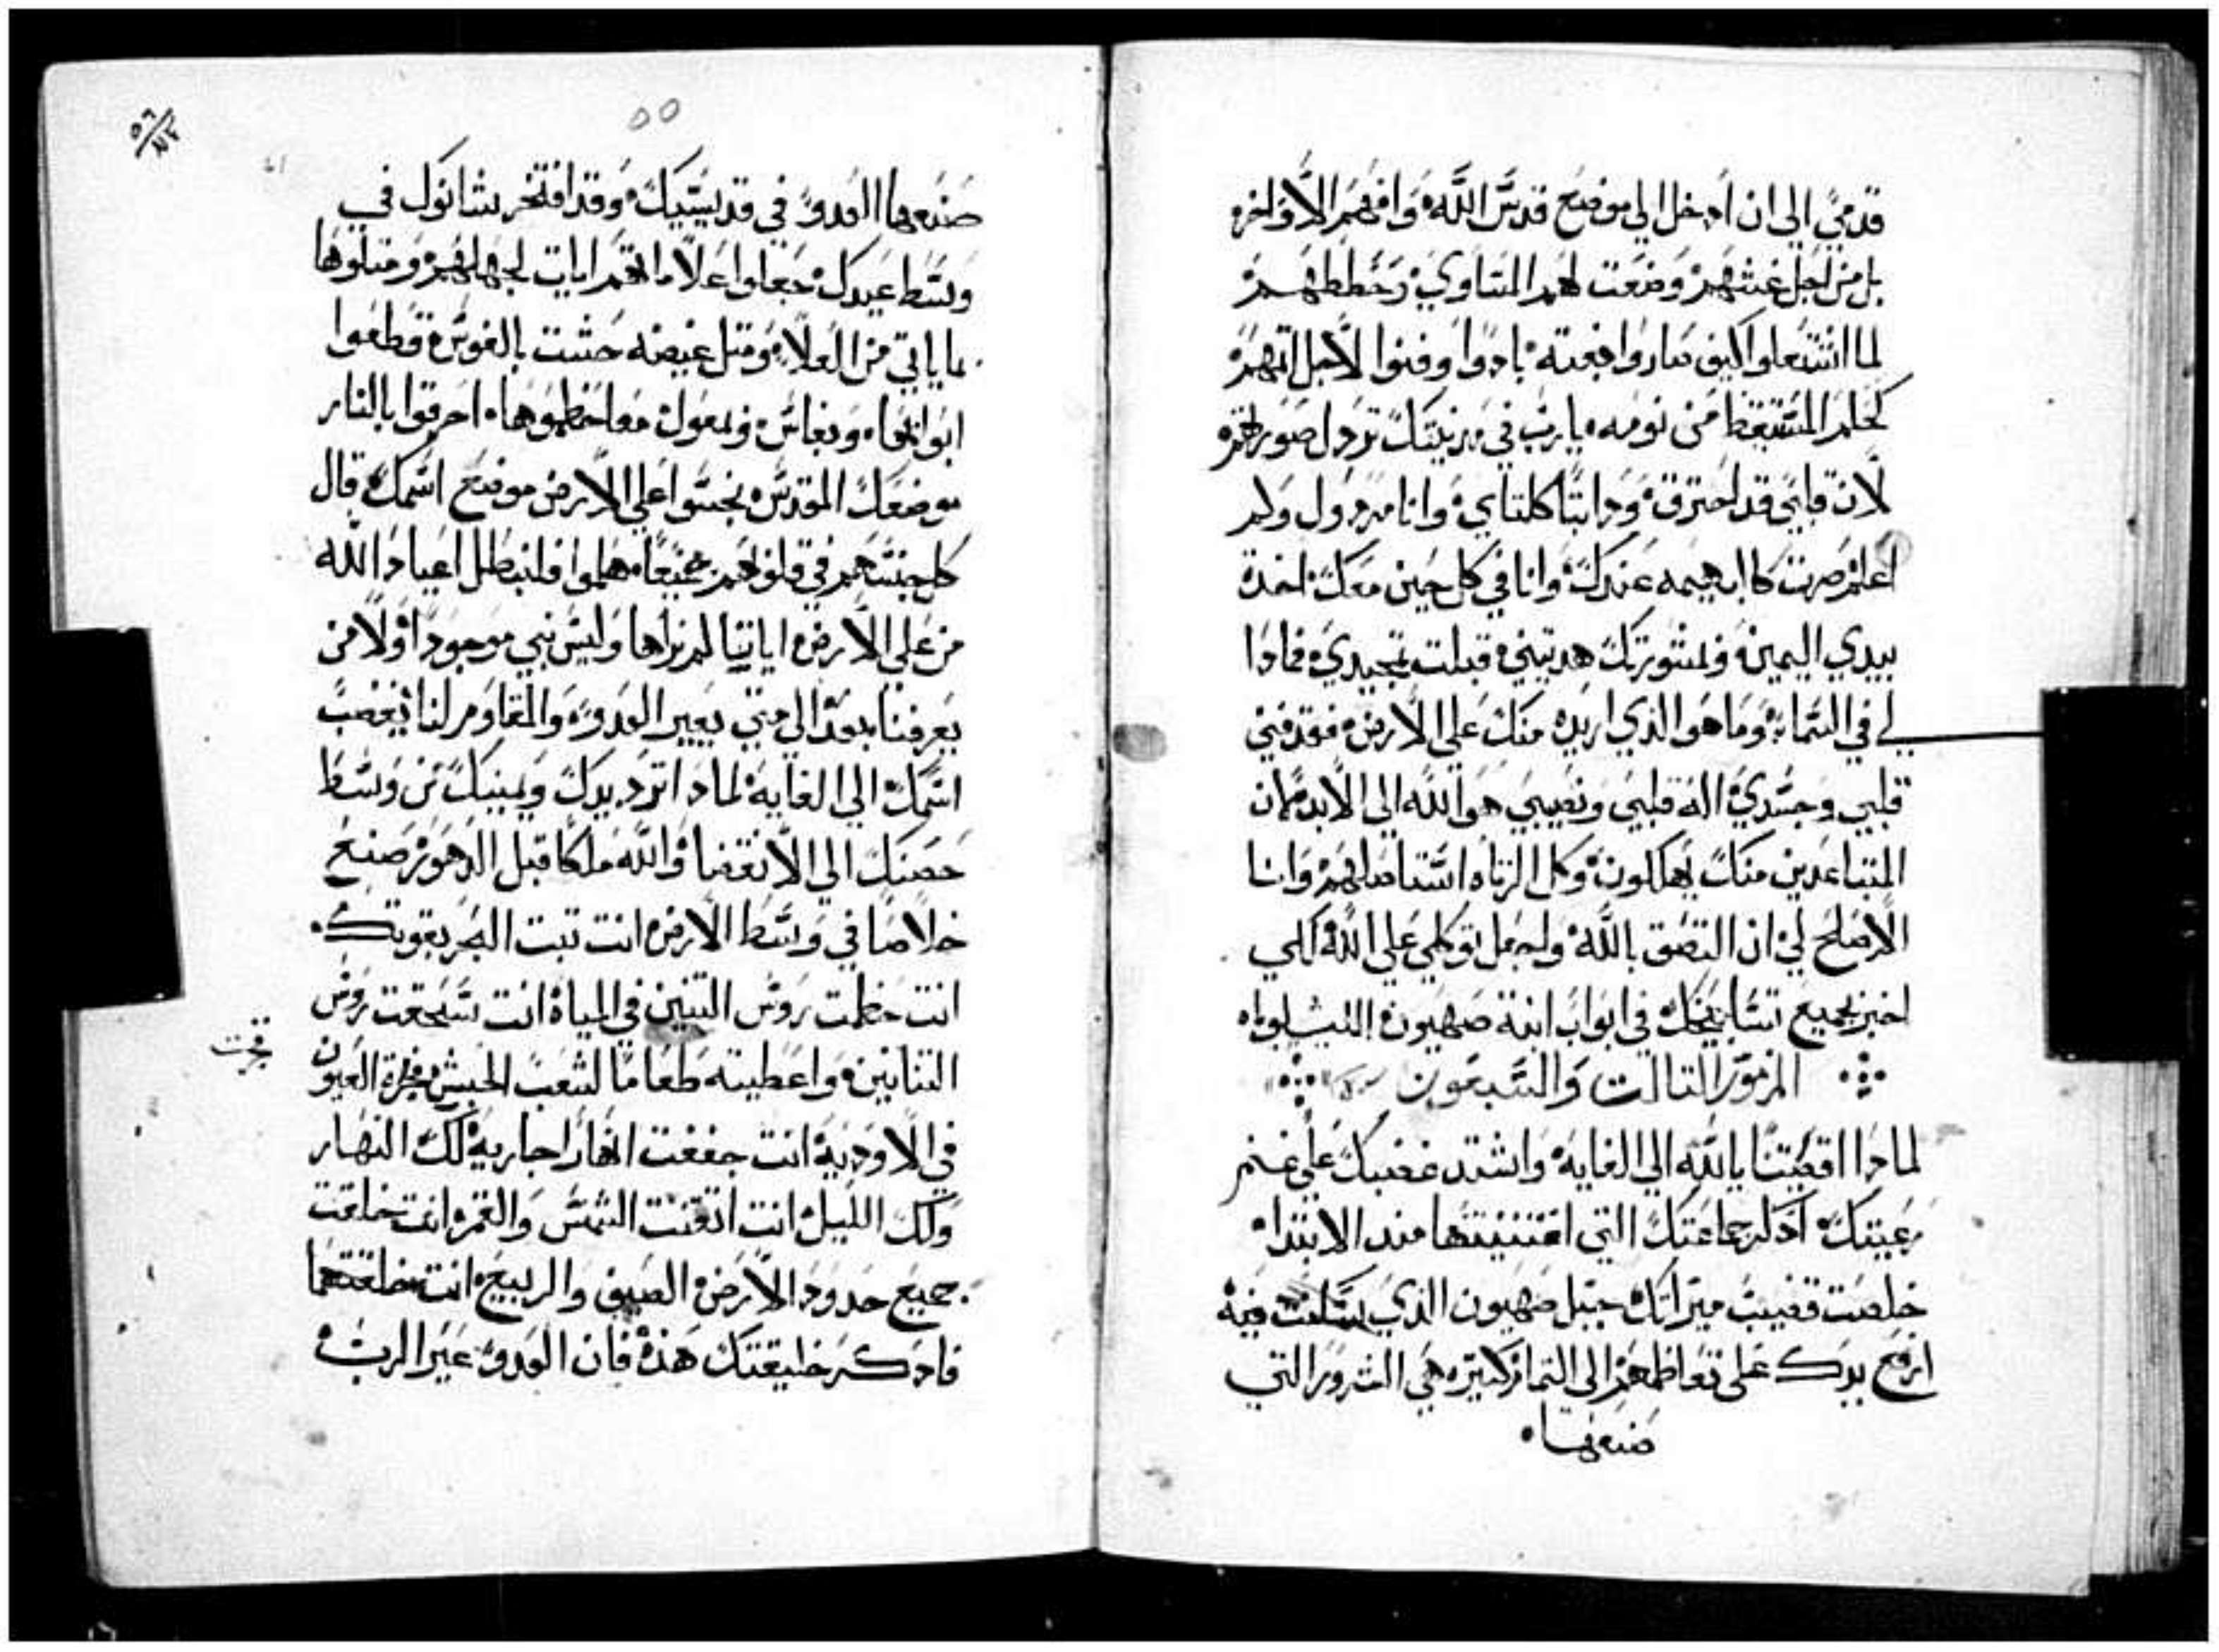 قدمي الى ان ادخل الى موضع قدس الله وافهم الاواخر
بل من اجل غشهم وضعت لهم المساوي وحططهم
لما اشتعلوا كيف صاروا بغته بادوا وفنوا لاجل اتمهم
كحلم المستيقظ من نومه يا رب في مدينتك تردل صورتهم
لان قلبي قد احترق ودابتا كلتاي وانا مردول ولم
اعلم صرت كالبهيمه عندك وانا في كل حين معك اخدت
بيدي اليمين وبمشورتك هديتني قبلت بتمجيدي فمادا
لي في السما وما هو الذي اريده منك على الارض فقد فني
قلبي وجسدي اله قلبي ونصيبي هو الله الى الابد فان
المتباعدين منك يهلكون وكل الزناه استاصلهم وانا
الاصلح لي ان التصق بالله واجعل توكلي على الله لكي
اخبر بجميع تسابيحك في ابواب ابنة صهيون الليلوياه
المزمور التالت والسبعون
لمادا اقصيتنا يا الله الى الغايه واشتد غضبك على غنم
رعيتك ادكر جماعتك التي اقتنيتها مند الابتدا
خلصت قضيب ميراتك جبل صهيون الذي سكنت فيه
ارفع يدك على تعاظمهم الى التمام كتيره هي الشرور التي
صنعها
٥٥
٥٦
صنعها العدو في قديسيك وقد افتخر شانوك في
وسط عيدك جعلوا اعلامهم ايات لجهلهم ومتلوها
بما ياتي من العلا ومتل غيضه حشت بالفوس قطعوا
ابوابها وبفاس وبمعول معا حطموها احرقوا بالنار
موضعك المقدس نجسوا على الارض موضع اسمك قال
كل جنسهم في قلوبهم جميعا هلموا فلنبطل اعياد الله
من على الارض اياتنا لم نراها وليس نبي موجودا ولا من
يعرفنا بعد الى متى يعير العدو والمقاوم لنا يغضب
اسمك الى الغايه لمادا ترد يدك ويمينك من وسط
حصنك الى الانقضا والله ملكا قبل الدهور صنع
خلاصا في وسط الارض انت تبت البحر بقوتك
انت حطمت روس التنين في المياه انت سحقت روس
التنانين واعطيته طعاما لشعب الحبش فجرة العيون
فجرت
في الاوديه انت جففت انهارا جاريه لك النهار
ولك الليل انت اتقنت الشمس والقمر انت خلقت
جميع حدود الارض الصيف والربيع انت خلقتهما
فادكر خليقتك هذه فان العدو عير الرب